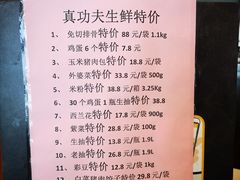 真功夫生鲜特价
1、 免切排骨特价 88 元/袋 1.1kg
2、 鸡蛋 6 个特价 7.8 元
3、 玉米猪肉包特价 18.8 元/袋
4、 外婆菜特价 33.8 元/袋 500g
5、 米粉特价 38.8 元/箱 3.25Kg
6、 30 个鸡蛋 1 瓶生抽特价 38.8
7、 西兰花特价 17.8 元/袋 900g
8、 紫菜特价 28.8 元/袋 100g
9、 生抽特价 13.8 元/瓶 1.9L
10、 老抽特价 26.8 元/瓶 1.9L
11、 彩豆特价 12.8 元/袋 1kg
12、 白菜猪肉饺子特价 29.8 元/